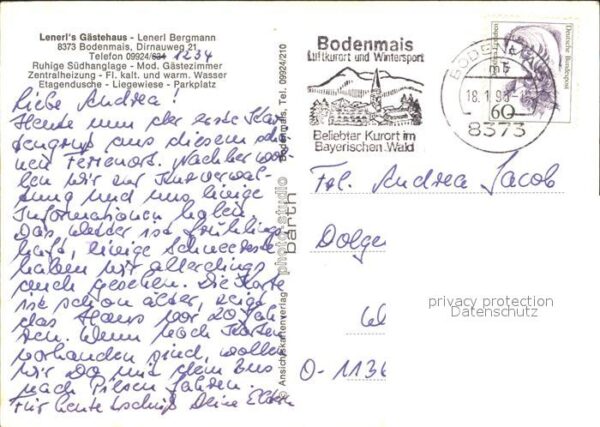 Lenerl's Gästehaus - Lenerl Bergmann
8373 Bodenmais, Dirnauweg 21
Telefon 09924/ 1234
Ruhige Südhanglage - Mod. Gästezimmer
Zentralheizung - Fl. kalt. und warm. Wasser
Etagendusche - Liegewiese - Parkplatz
Liebe Andrea!
Heute nun der erste Kar-
tengruß aus diesem schö-
nen Ferienort. Nachher wol-
len wir zur Kurverwal-
tung und uns einige
Informationen holen.
Das Wetter ist frühling-
haft, einige Schneereste
haben wir allerdings
auch gesehen. Die Karte
ist schon älter, zeigt
das Haus vor 20 Jah-
ren. Wenn noch Karten
vorhanden sind, wollen
wir Do mit dem Bus
nach Pilsen fahren.
Für heute tschüß Deine Eltern
© Ansichtskartenverlag photo-studio barth Bodenmais, Tel. 09924/210
Bodenmais
Luftkurort und Wintersport
Beliebter Kurort im
Bayerischen Wald
BODENMAIS
18.1.9
8373
Deutsche Bundespost
60
Frl. Andrea Jacob
Dolge
O-1136
privacy protection
Datenschutz